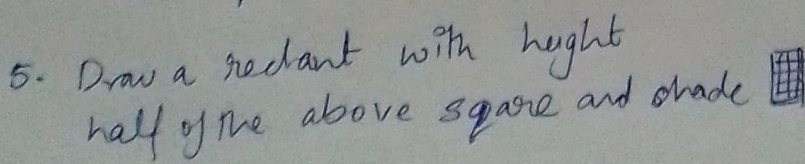 5. Draw a rectant with hught
half of the above sqare and shade